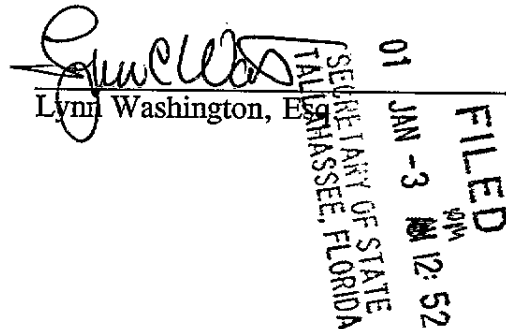 Lynn Washington, Esq.
FILED
01 JAN -3 12: 52
SECRETARY OF STATE
TALLAHASSEE, FLORIDA